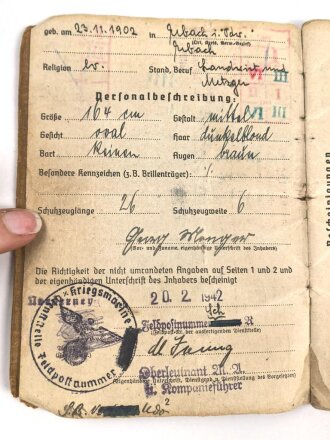 geb. am 23.11.1902 in Erbach i. Odw.
(Ort, Kreis, Verw.-Bezirk)
Erbach
Religion ev. Stand, Beruf Landwirt und
Metzger
III IV
Personalbeschreibung:
Größe 164 cm Gestalt mittel
Gesicht oval Haar dunkelblond
Bart keinen Augen braun
Besondere Kennzeichen (z.B. Brillenträger): ./.
Schuhzeuglänge 26 Schuhzeugweite 6
Georg
(Vor- und Zuname, eigenhändige Unterschrift des Inhabers)
Die Richtigkeit der nicht umrandeten Angaben auf Seiten 1 und 2 und
der eigenhändigen Unterschrift des Inhabers bescheinigt
Norderney 20. 2. 1942
Kriegsmarine
Feldpostnummer
Feldpostnummer R
Oberleutnant M.A.
u. Kompanieführer